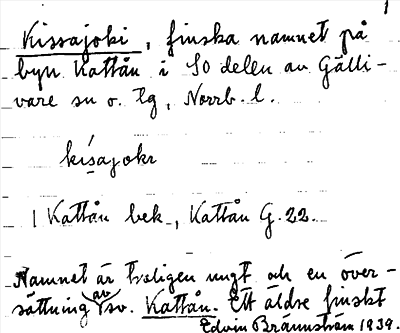 1
Kissajoki, finska namnet på
byn Kattån i SO delen av Gälli-
vare sn o. tg, Norrb. l.
kísajokı
| Kattån bek., Kattån G. 22.
Namnet är troligen ungt och en över-
sättning av sv. Kattån. Ett äldre finskt
Edvin Brännström 1939.